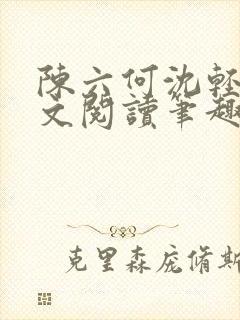 陳六何沈輕
文閱讀筆趣
克里森庞脩斯